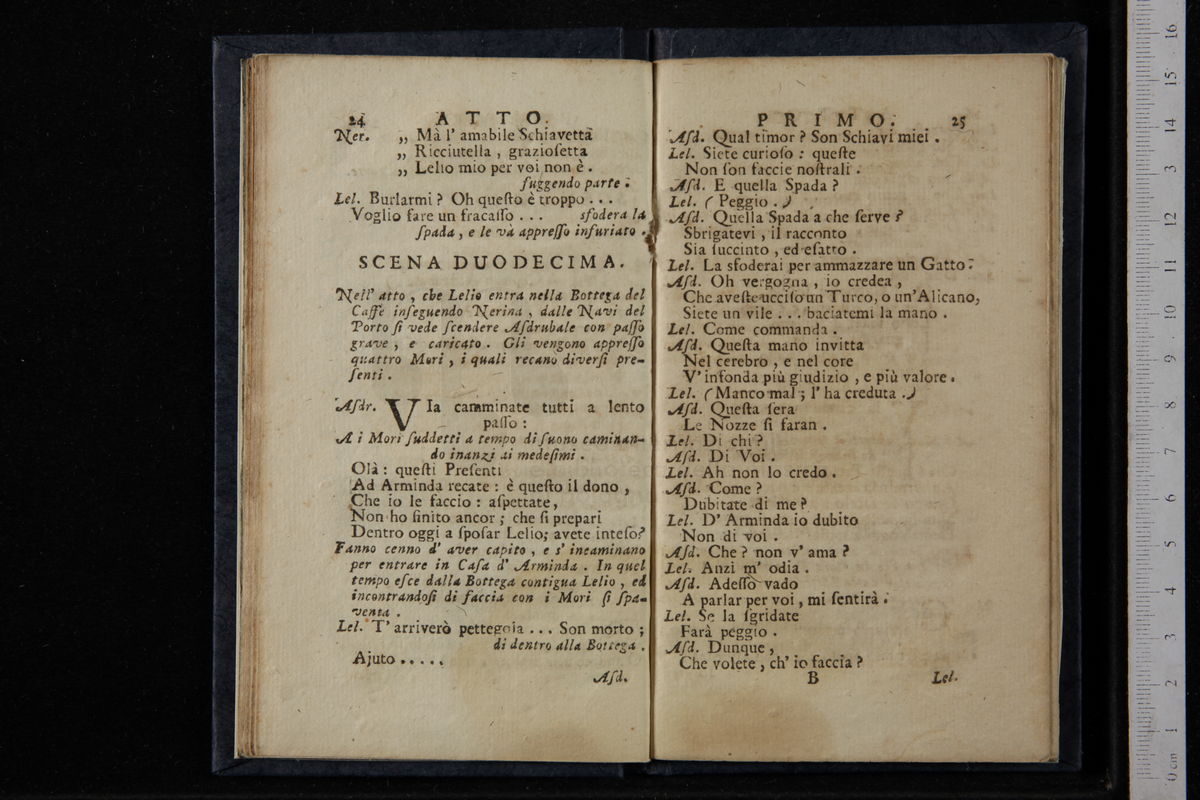 24 ATTO.
Ner. „ Mà l' amabile Schiavetta
„ Ricciutella , grazioſetta
„ Lelio mio per voi non è .
fuggendo parte .
Lel. Burlarmi ? Oh queſto è troppo . . .
Voglio fare un fracaſſo . . . sfodera la
ſpada , e le và appreſſo infuriato .
SCENA DUODECIMA.
Nell' atto , che Lelio entra nella Bottega del
Caffè inſeguendo Nerina , dalle Navi del
Porto ſi vede ſcendere Aſdrubale con paſſo
grave , e caricato . Gli vengono appreſſo
quattro Mori , i quali recano diverſi pre-
ſenti .
Aſdr. VIa camminate tutti a lento
paſſo :
A i Mori ſuddetti a tempo di ſuono caminan-
do inanzi ai medeſimi .
Olà : queſti Preſenti
Ad Arminda recate : è queſto il dono ,
Che io le faccio : aſpettate,
Non ho finito ancor ; che ſi prepari
Dentro oggi a ſpoſar Lelio; avete inteſo?
Fanno cenno d' aver capito , e s' incaminano
per entrare in Caſa d' Arminda . In quel
tempo eſce dalla Bottega contigua Lelio , ed
incontrandoſi di faccia con i Mori ſi ſpa-
venta .
Lel. T' arriverò pettegola . . . Son morto ;
di dentro alla Bottega .
Ajuto . . . . .
Aſd.
PRIMO. 25
Aſd. Qual timor ? Son Schiavi miei .
Lel. Siete curioſo : queſte
Non ſon faccie noſtrali .
Aſd. E quella Spada ?
Lel. ( Peggio . )
Aſd. Quella Spada a che ſerve ?
Sbrigatevi , il racconto
Sia ſuccinto , ed eſatto .
Lel. La sfoderai per ammazzare un Gatto .
Aſd. Oh vergogna , io credea ,
Che aveſte ucciſo un Turco, o un'Alicano,
Siete un vile . . . baciatemi la mano .
Lel. Come commanda .
Aſd. Queſta mano invitta
Nel cerebro , e nel core
V' infonda più giudizio , e più valore .
Lel. ( Manco mal ; l' ha creduta . )
Aſd. Queſta ſera
Le Nozze ſi faran .
Lel. Di chi ?
Aſd. Di Voi .
Lel. Ah non lo credo .
Aſd. Come ?
Dubitate di me ?
Lel. D' Arminda io dubito
Non di voi .
Aſd. Che ? non v' ama ?
Lel. Anzi m' odia .
Aſd. Adeſſo vado
A parlar per voi , mi ſentirà .
Lel. Se la ſgridate
Farà peggio .
Aſd. Dunque ,
Che volete , ch' io faccia ?
B Lel.
0 cm 1 2 3 4 5 6 7 8 9 10 11 12 13 14 15 16